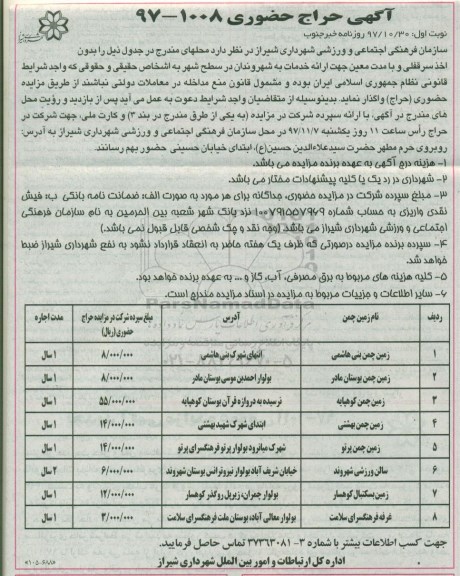 آگهی حراج حضوری ۱۰۰۸-۹۷
نوبت اول: ۹۷/۱۰/۳۰ روزنامه خبر جنوب
سازمان فرهنگی اجتماعی و ورزشی شهرداری شیراز در نظر دارد محلهای مندرج در جدول ذیل را بدون
اخذ سرقفلی و با مدت معین جهت ارائه خدمات به شهروندان در سطح شهر به اشخاص حقیقی و حقوقی که واجد شرایط
قانونی نظام جمهوری اسلامی ایران بوده و مشمول قانون منع مداخله در معاملات دولتی نباشند از طریق مزایده
حضوری (حراج) واگذار نماید. بدینوسیله از متقاضیان واجد شرایط دعوت به عمل می آید پس از بازدید و رؤیت محل
های مندرج در آگهی، با ارائه سپرده شرکت در مزایده (به یکی از طرق مندرج در بند ۳) و کارت ملی، جهت شرکت در
حراج رأس ساعت ۱۱ روز یکشنبه ۹۷/۱۱/۷ در محل سازمان فرهنگی اجتماعی و ورزشی شهرداری شیراز به آدرس:
روبروی حرم مطهر حضرت سیدعلاءالدین حسین(ع)، ابتدای خیابان حسینی حضور بهم رسانند.
۱- هزینه درج آگهی به عهده برنده مزایده می باشد.
۲- شهرداری در رد یک یا کلیه پیشنهادات مختار می باشد.
۳- مبلغ سپرده شرکت در مزایده حضوری، جداگانه برای هر مورد به صورت الف: ضمانت نامه بانکی ب: فیش
نقدی واریزی به حساب شماره ۱۰۰۷۹۱۵۵۷۹۶۹ نزد بانک شهر شعبه بین الحرمین به نام سازمان فرهنگی
اجتماعی و ورزشی شهرداری شیراز می باشد (وجه نقد و چک شخصی قابل قبول نمی باشد)
۴- سپرده برنده مزایده درصورتی که ظرف یک هفته حاضر به انعقاد قرارداد نشود به نفع شهرداری شیراز ضبط
خواهد شد.
۵- کلیه هزینه های مربوط به برق مصرفی، آب، گاز و ... به عهده برنده خواهد بود.
۶- سایر اطلاعات و جزییات مربوط به مزایده در اسناد مزایده مندرج است.
ردیف نام زمین چمن آدرس مبلغ سپرده شرکت در مزایده حراج حضوری (ریال) مدت اجاره
۱ زمین چمن بنی هاشمی انتهای شهرک بنی هاشمی ۸/۰۰۰/۰۰۰ ۱ سال
۲ زمین چمن بوستان مادر بولوار احمدبن موسی بوستان مادر ۸/۰۰۰/۰۰۰ ۱ سال
۳ زمین چمن کوهپایه نرسیده به دروازه قرآن بوستان کوهپایه ۵۵/۰۰۰/۰۰۰ ۱ سال
۴ زمین چمن بهشتی ابتدای شهرک شهید بهشتی ۱۴/۰۰۰/۰۰۰ ۱ سال
۵ زمین چمن پرتو شهرک میانرود بولوار پرتو فرهنگسرای پرتو ۱۴/۰۰۰/۰۰۰ ۱ سال
۶ سالن ورزشی شهروند خیابان شریف آباد بولوار نیروترانس بوستان شهروند ۶/۰۰۰/۰۰۰ ۲ سال
۷ زمین بسکتبال کوهسار بولوار چمران، زیرپل روگذر کوهسار ۱۲/۰۰۰/۰۰۰ ۱ سال
۸ غرفه فرهنگسرای سلامت بولوار معالی آباد، بوستان ملت فرهنگسرای سلامت ۳/۰۰۰/۰۰۰ ۱ سال
جهت کسب اطلاعات بیشتر با شماره ۳-۳۷۳۶۳۰۸۱ تماس حاصل فرمایید.
اداره کل ارتباطات و امور بین الملل شهرداری شیراز